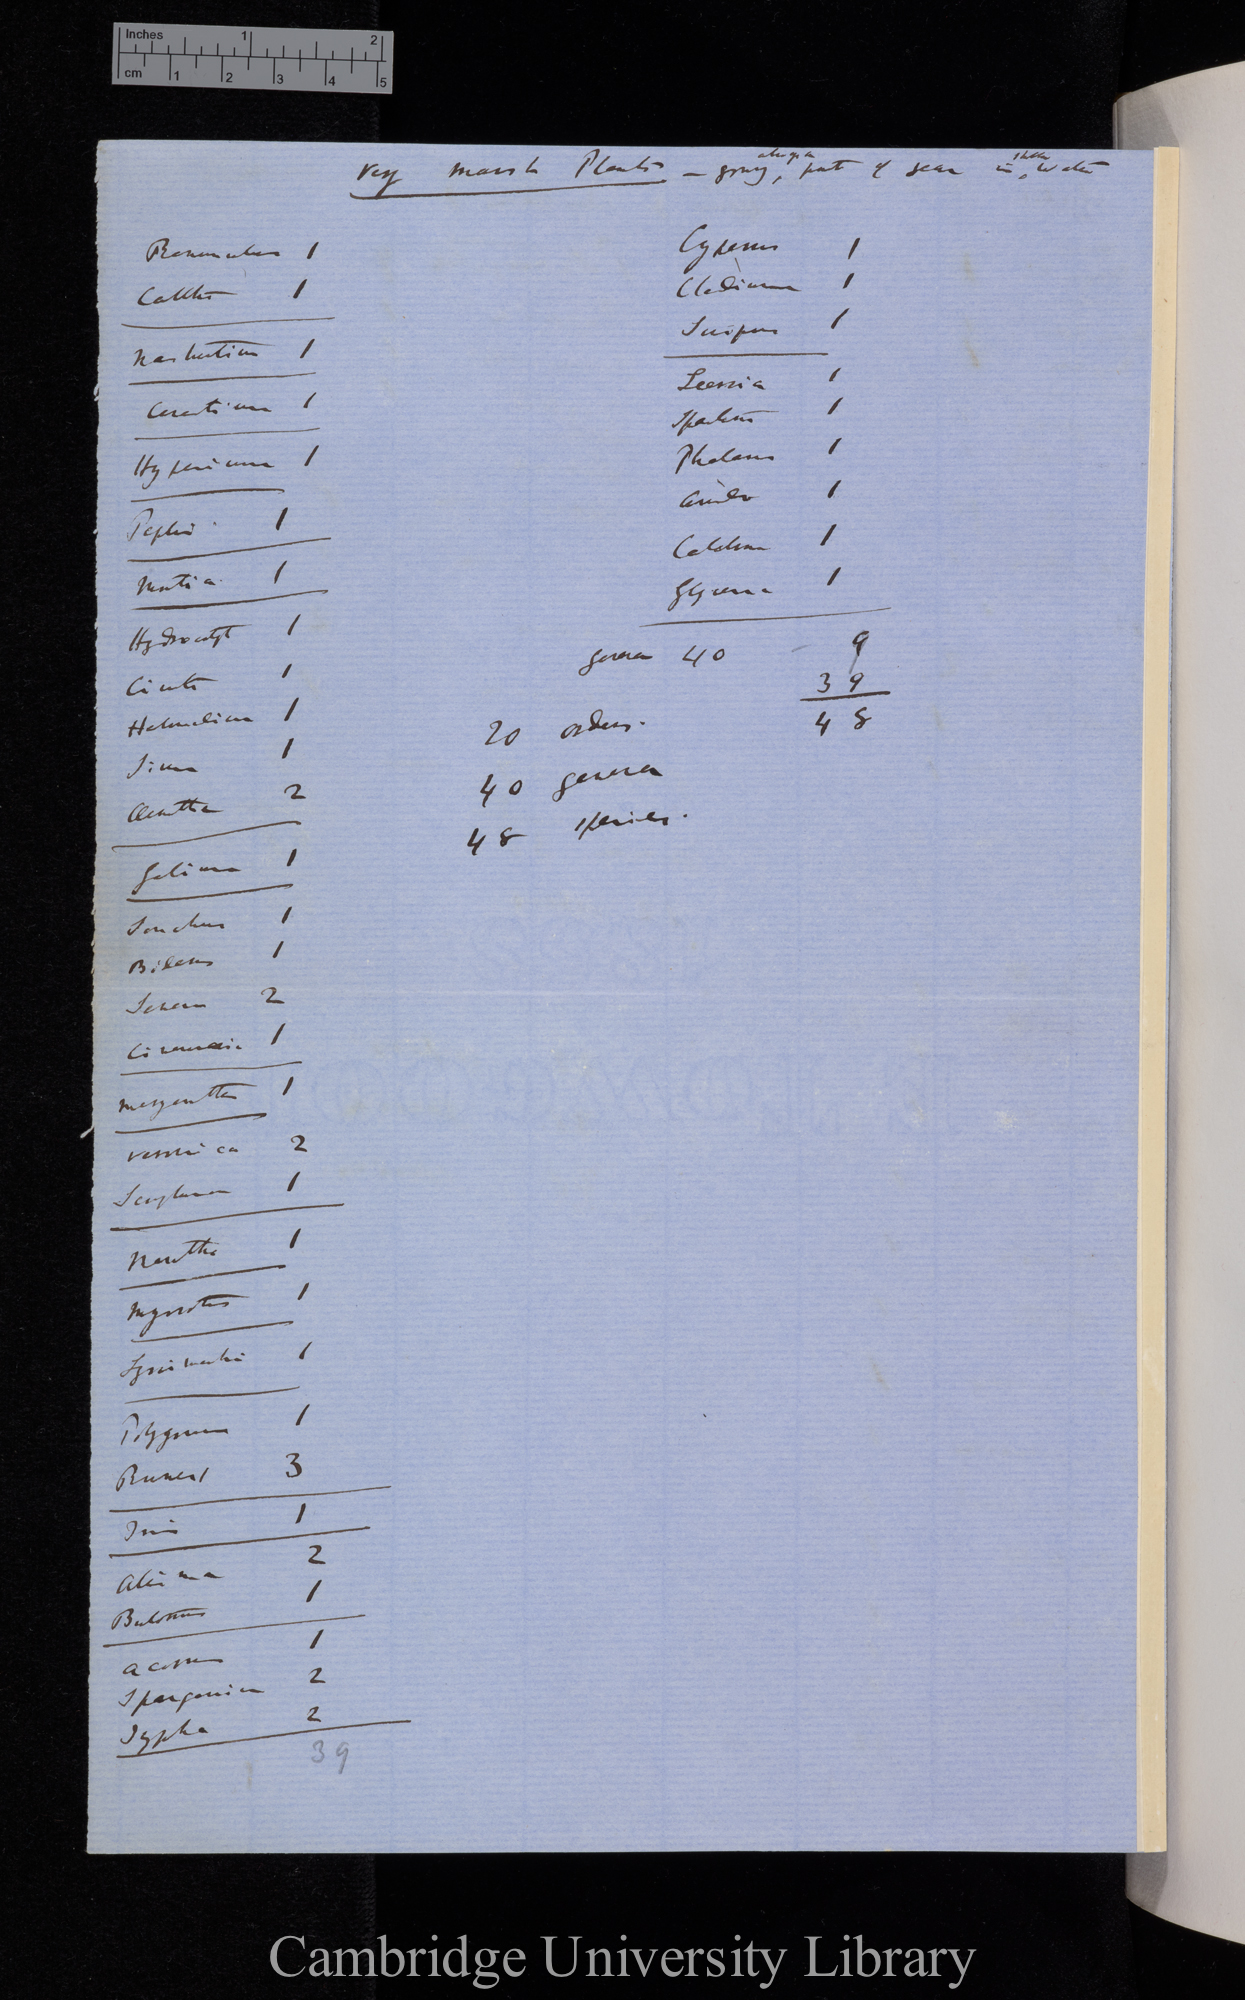 Inches 1 2
cm 1 2 3 4 5
Very marsh Plants – growg, part of year in, water
Ranunculus 1
Caltha 1
Nasturtium 1
Cerastium 1
Hypericum 1
Peplis 1
Montia 1
Hydrocotyl 1
Cicuta 1
Helosciadium 1
Sium 1
Œnanthe 2
Galium 1
Sonchus 1
Bidens 1
Senecio 2
Cineraria 1
Menyanthes 1
Veronica 2
Scrophularia 1
Mentha 1
Myosotis 1
Lysimachia 1
Polygonum 1
Rumex 3
Iris 1
Alisma 2
Butomus 1
Acorus 1
Sparganium 2
Typha 2
39
Cyperus 1
Cladium 1
Scirpus 1
Leersia 1
Spartina 1
Phalaris 1
Arundo 1
Calabrosa 1
Glyceria 1
genera 40 – 9
39
48
20 orders.
40 genera
48 species.
Cambridge University Library